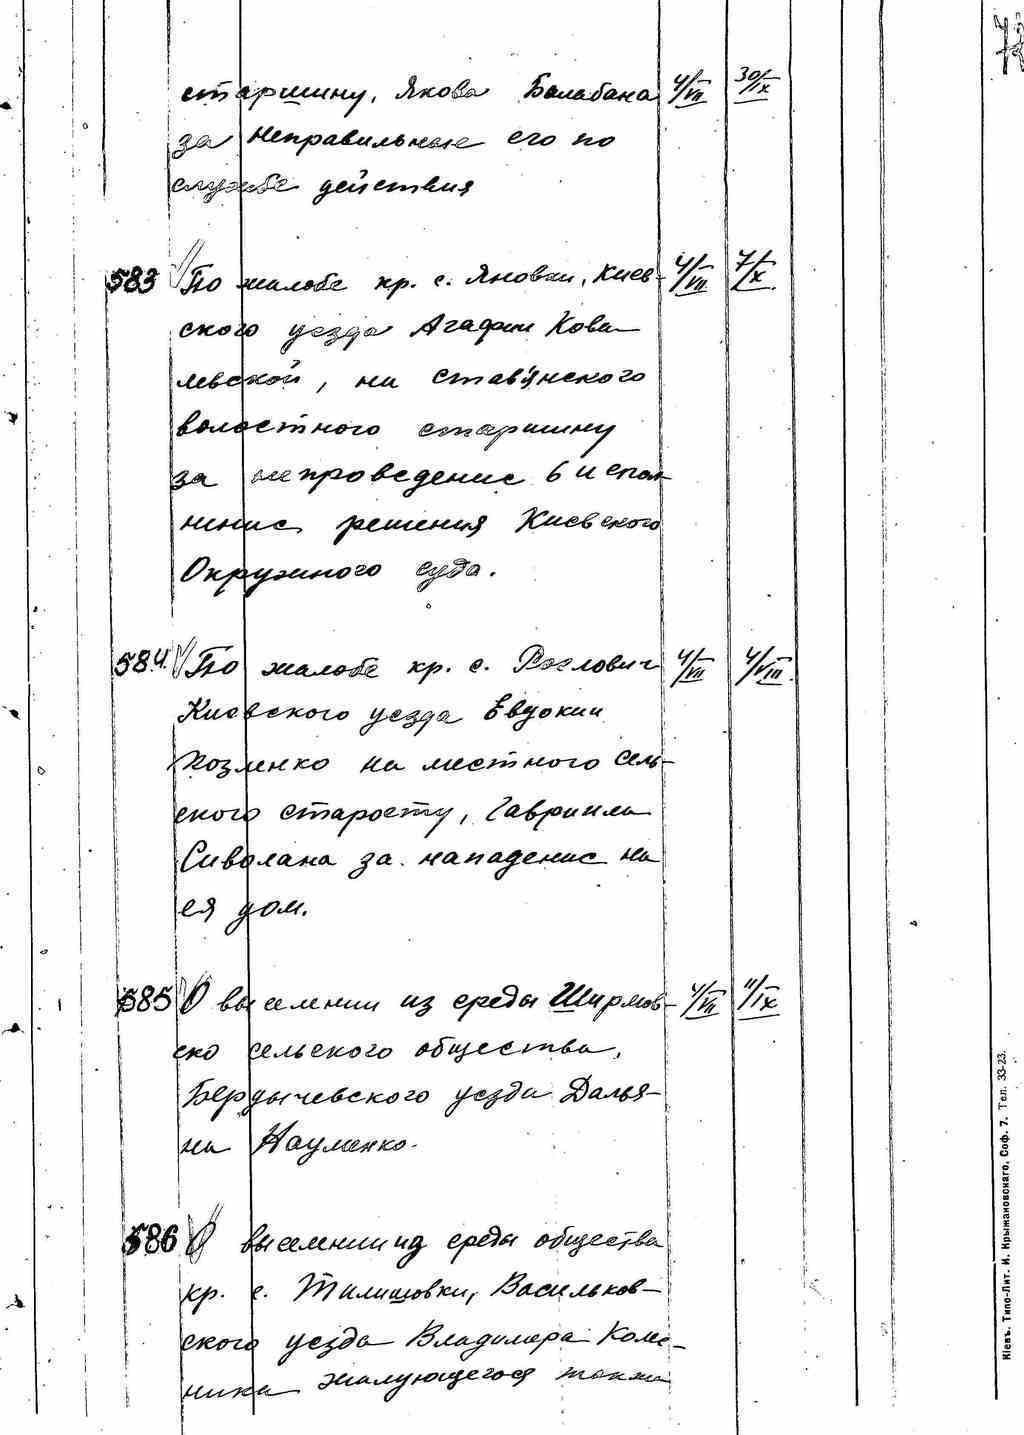 старшину, Якова Балабана 4/VII 30/IX
за неправильные его по
службе действия
583 По жалобе кр. с. Яновки, Киев- 4/VII 7/X.
ского уезда Агафии Кова-
левской, на Ставянского
волостного старшину
за непроведение в испол-
нение решения Киевского
Окружного суда.
584. По жалобе кр. с. 4/VII 4/VIII.
Киевского уезда Евдокии
Козленко на местного сель-
ского старосту, Гавриила
Сиволапа за нападение на
ея дом.
585 О выселении из среды Ширмов- 4/VII 11/IX
ско сельского общества,
Бердычевского уезда
на Науменко.
586 О выселении из среды общества
кр. с. Васильков-
ского уезда Владимира Коле-
ника жалующегося также
Кіевъ. Типо-Лит. И. Крыжановскаго, Соф. 7. Тел. 33-23.